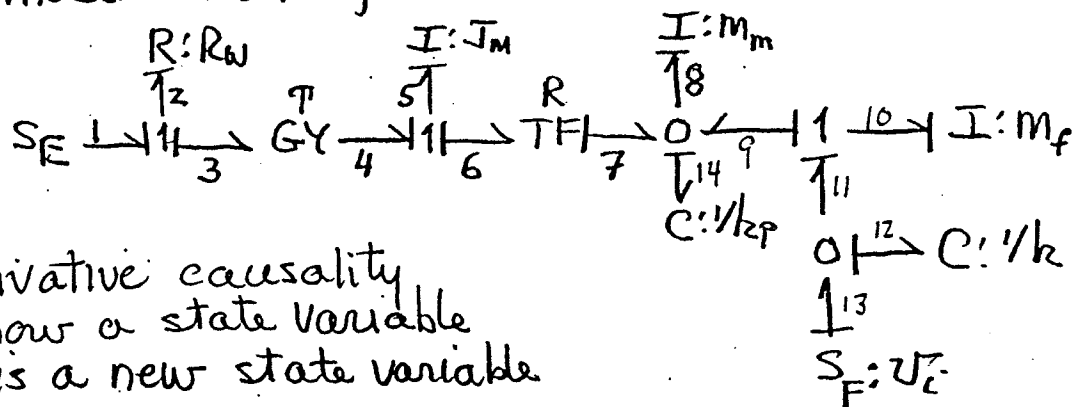 R:R_W I:J_M I:M_m
2 5 8
S_E 1 1 3 GY T 4 1 6 TF R 7 0 9 1 10 I:m_f
14 11
C:1/k_p
0 12 C:1/k
13
ivative causality
now a state variable
is a new state variable
S_F:V_i